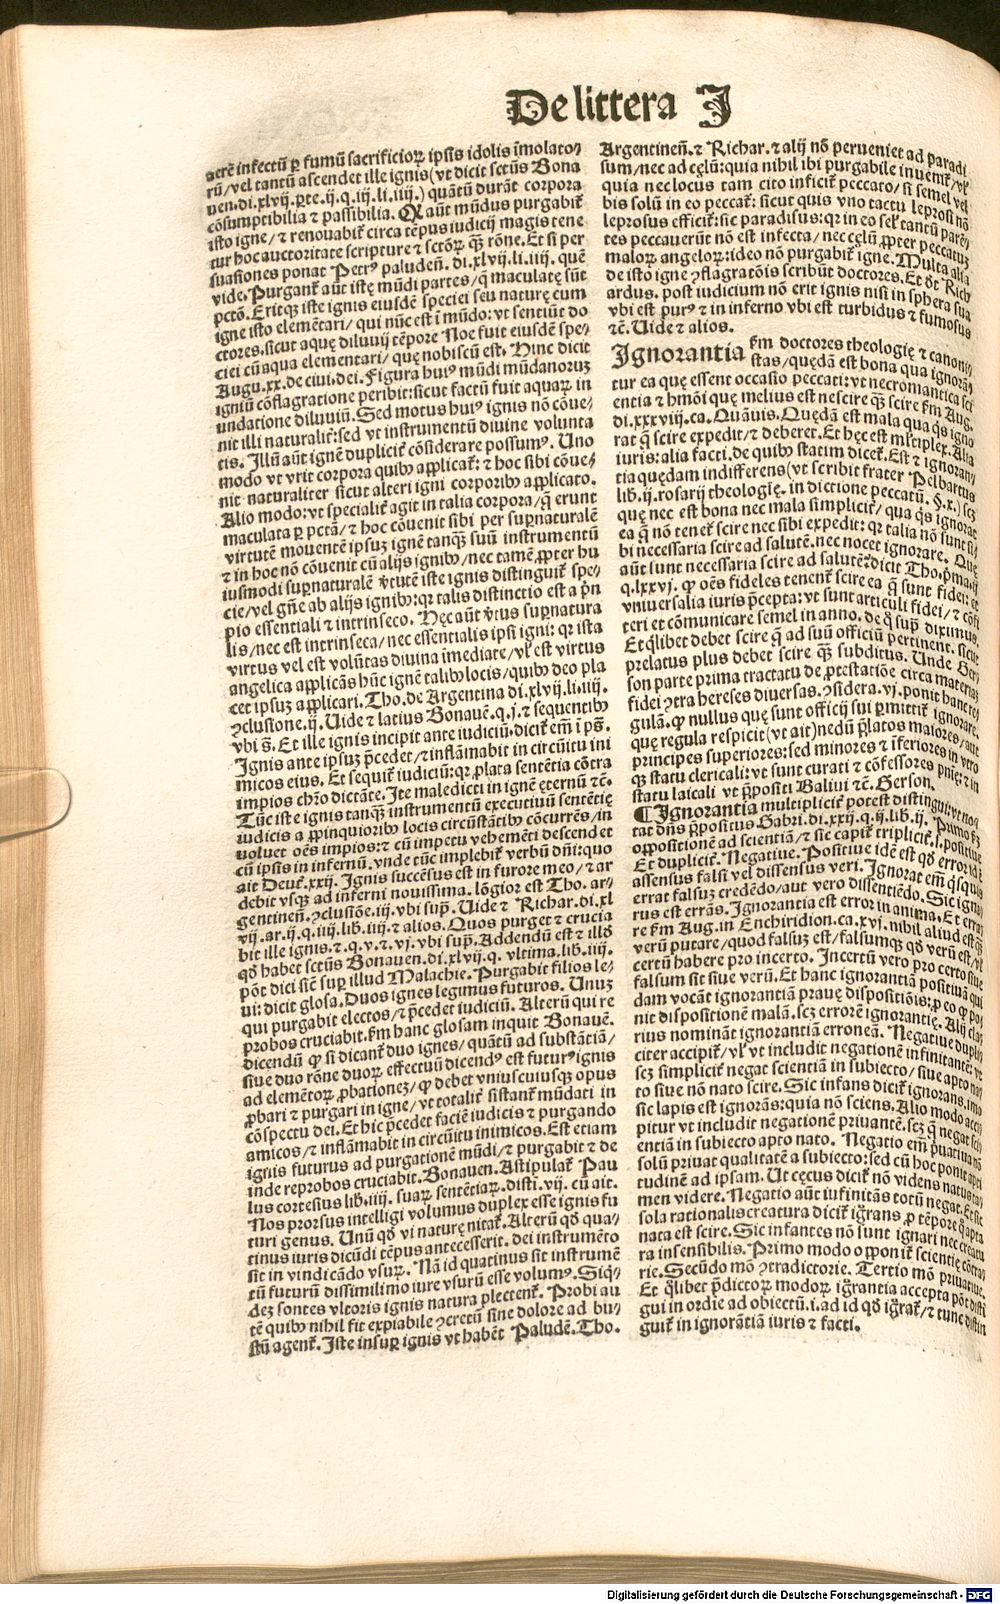 De littera J
aerē infectū ꝑ fumū sacrificioꝝ ipsis idolis īmolato⸗
rū/vel tantū ascendet ille ignis(vt dicit sctūs Bona
uen.di.xlvij.ꝑte.ij.q.iij.li.iiij.) quātū durāt corpora
cōsumptibilia ⁊ passibilia. Q aūt mūdus purgabit̄
isto igne/⁊ renouabit̄ circa tēpus iudicij magis tene
tur hoc auctoritate scripture ⁊ sctōꝝ q̄ꝫ rōne. Et si per
suasiones ponat Petrꝰ paluden̄. di.xlvij.li.iiij. quē
vide. Purgant̄ aūt istę mūdi partes/q̄ maculatę sūt
pctō. Eritqꝫ iste ignis eiusdē speciei seu naturę cum
igne isto elemētari/ qui nūc est ī mūdo: vt sentiūt do
ctores.sicut aquę diluuij tēpore Noe fuit eiusdē spe⸗
ciei cū aqua elementari/ quę nobiscū est. Hinc dicit
Augu.xx.de ciui.dei. Figura huiꝰ mūdi mūdanoruꝫ
igniū cōflagratione peribit: sicut factū fuit aquaꝝ in
undatione diluuiū. Sed motus huiꝰ ignis nō cōue⸗
nit illi naturalit̄:sed vt instrumentū divine volunta
tis. Illū aūt ignē duplicit̄ cōsiderare possumꝰ. Uno
modo vt vrit corpora quibꝰ applicat̄: ⁊ hoc sibi cōue⸗
nit naturaliter sicut alteri igni corporibꝰ applicato.
Alio modo: vt specialit̄ agit in talia corpora/q̄ erunt
maculata ꝑ pctā/ ⁊ hoc cōuenit sibi per suꝑnaturalē
virtutē mouentē ipsuꝫ ignē tanqꝫ suū instrumentū
⁊ in hoc nō cōuenit cū alijs ignibꝰ/nec tamē ꝓpter hu
iusmodi suꝑnaturalē v̄tutē iste ignis distinguit̄ spe⸗
cie/vel gn̄e ab alijs ignibꝰ:qꝛ talis distinctio est a p̄n
pio essentiali ⁊ intrinseco. Hęc aūt v̄tus suꝑnatura
lis/nec est intrinseca/nec essentialis ipsi igni: qꝛ ista
virtus vel est volūtas divina īmediate/ vl̄ est virtus
angelica applicās hūc ignē talibꝰ locis/quibꝰ deo pla
cet ipsuꝫ applicari. Tho. de Argentina di.xlvij.li.iiij.
ꝯclusione.ij. Uide ⁊ latius Bonauē.q.j.⁊ sequentibꝰ
vbi s̄. Et ille ignis incipit ante iudiciū.dicit̄ em̄ ī ps̄.
Ignis ante ipsuꝫ p̄cedet/⁊ inflāmabit in circūitu ini
micos eius. Et sequit̄ iudiciū:qꝛ ꝓlata sentētia cōtra
impios chr̄o dictāte. Ite maledicti in ignē ęternū ⁊c̄.
Tūc iste ignis tanqꝫ instrumentū executiuū sentētię
iudicis a ꝓpinquioribꝰ locis circūstātibꝰ cōcurrēs/in
voluet oēs impios:⁊ cū impetu vehemēti descendet
cū ipsis in infernū. vnde tūc implebit̄ verbū dn̄i:quo
ait Deut̄.xxij. Ignis succēsus est in furore meo/⁊ ar
debit vsqꝫ ad inferni novissima. lōgior est Tho. ar⸗
gentinen̄.ꝯclusiōe.iij.vbi supͣ. Uide ⁊ Richar.di.xl
vij.ar.ij.q.iiij.lib.iiij.⁊ alios. Quos purget ⁊ crucia
bit ille ignis.⁊.q.v.⁊.vj.vbi supͣ. Addendū est ⁊ illō
qō habet sctūs Bonauen.di.xlvij.q. vltima.lib.iiij.
pōt dici siē suꝑ illud Malachie. Purgabit filios le⸗
ui: dicit glosa. Duos ignes legimus futuros. Unuꝫ
qui purgabit electos/ ⁊ p̄cedet iudiciū. Alterū qui re
probos cruciabit.ẜm hanc glosam inquit Bonauē.
dicendū ꝙ si dicant̄ duo ignes/ quātū ad substātiā/
siue duo rōne duoꝝ effectuū dicendꝰ est futurꝰ ignis
ad elemētoꝝ ꝓbationeꝫ/ ꝙ debet vniuscuiusqꝫ opus
ꝓbari ⁊ purgari in igne/ vt totalit̄ sistant̄ mūdati in
cōspectu dei. Et hic p̄cedet faciē iudicis ⁊ purgando
amicos/⁊ inflāmabit in circūitu inimicos. Est etiam
ignis futurus ad purgationē mūdi/⁊ purgabit ⁊ de
inde reprobos cruciabit. Bonauen. Astipulat̄ Pau
lus cortesius lib.iiij. suaꝝ sentētiaꝝ.disti.vij. cū ait.
Nos prorsus intelligi volumus duplex esse ignis fu
turi genus. Unū qō vi naturę nitat̄. Alterū qō qua⸗
tinus iuris dicūdi tēpus antecesserit. dei instrumēto
sit in vindicādo vsuꝝ. Nā id quatinus sit instrumē
tū futurū dissimilimo iure vsurū esse volumꝰ. Siqͥ⸗
deꝫ sontes vltoris ignis natura plectent̄. Probi au
tē quibꝰ nihil fit expiabile ꝯcretū sine dolore ad bu⸗
stū agent̄. Iste insuꝑ ignis vt habēt Paludē. Tho.
Argentinen̄.⁊ Richar.⁊ alij nō perueniet ad paradi
sum/nec ad cęlū:quia nihil ibi purgabile inuenit̄/vl̄
quia nec locus tam cito inficit̄ peccato/ si semel vel
bis solū in eo peccat̄: sicut quis vno tactu leprosi nō
leprosus efficit̄: sic paradisus:qꝛ in eo sel̄ tantū parē⸗
tes peccauerūt nō est infecta/ nec cęlū ꝓpter peccatuꝫ
maloꝝ angeloꝝ:ideo nō purgabit̄ igne. Multa alia
de isto igne ꝯflagratōis scribūt doctores. Et d̄t Rich
ardus. post iudicium nō erit ignis nisi in sphera sua
vbi est purꝰ ⁊ in inferno vbi est turbidus ⁊ fumosus
⁊c̄. Uide ⁊ alios.
Ignorantia ẜm doctores theologię ⁊ canonis
stas/quędā est bona qua ignorā⸗
tur ea quę essent occasio peccati:vt necromantica sci
entia ⁊ hmōi quę melius est nescire q̄ꝫ scire ẜm Aug.
di.xxxviij.ca. Quāuis. Quędā est mala qua qͥs igno
rat q̄ scire expedit/⁊ deberet. Et hęc est ml̄tiplex. Alia
iuris: alia facti. de quibꝰ statim dicet̄. Est ⁊ ignoran⸗
tia quędam indifferens(vt scribit frater Pelbartus
lib.ij.rosarij theologię. in dictione peccatū. §.x.) scꝫ
quę nec est bona nec mala simplicit̄/ qua qͥs ignorat
ea q̄ nō tenet̄ scire nec sibi expedit: qꝛ talia nō sunt si⸗
bi necessaria scire ad salutē.nec nocet ignorare. Quę
aūt sunt necessaria scire ad salutē?dicit Tho.p̄ma ij
q.lxxvj. ꝙ oēs fideles tenent̄ scire ea q̄ sunt fidei: et
vniuersalia iuris p̄cepta: vt sunt articuli fidei/ ⁊ cōfi
teri et cōmunicare semel in anno. de qͦ supͣ diximus.
Et qͥlibet debet scire q̄ ad suū officiū pertinent. sicut
prelatus plus debet scire q̄ꝫ subditus. Unde Ger
son parte prima tractatu de ꝓtestatiōe circa materiaꝫ
fidei ꝯtra hereses diuersas. ꝯsidera.vj.ponit hanc re⸗
gulā.ꝙ nullus quę sunt officij sui ꝑmittit̄ ignorare.
quę regula respicit(vt ait)nedū p̄latos maiores/aut
principes superiores: sed minores ⁊ īferiores in vtro
qꝫ statu clericali: vt sunt curati ⁊ cōfessores pn̄ię:⁊ in
statu laicali vt p̄positi Baliui ⁊c̄. Gerson.
¶ Ignorantia multiplicit̄ potest distingui:vt noq
tat dn̄s p̄positus Gabri.di.xxij.q.ij.lib.ij. Primo ẜm
oppositionē ad scientiā/⁊ sic capit̄ tripliciter̄.j.positiue
Et duplicit̄. Negatiue. Positiue idē est qō error id ē
assensus falsi vel dissensus veri. Ignorat em̄ qͥsquis
errat falsuꝫ credēdo/aut vero dissentiēdo. Sic igno
rus est errās. Ignorantia est error in anima. Et erra
re ẜm Aug.in Enchiridion.ca.xvj.nihil aliud est qͣꝫ
verū putare/quod falsuꝫ est/falsumqꝫ qō verū est/vl̄
certū habere pro incerto. Incertū vero pro certo siue
falsum sit siue verū. Et hanc ignorantiā positiuā qui
dam vocāt ignorantiā prauę dispositiōis:ꝓ eo ꝙ po
nit dispositionē malā.scꝫ errorē ignorantię. Alij cla
rius nomināt ignorantiā erroneā. Negatiue dupli
citer accipit̄/vl̄ vt includit negationē infinitantē: vt
scꝫ simplicit̄ negat scientiā in subiecto/ siue apto na
to siue nō nato scire. Sic infans dicit̄ ignorans. imo
sic lapis est ignorās: quia nō sciens. Alio modo acci
pitur vt includit negationē priuantē.scꝫ q̄ negat sci
entiā in subiecto apto nato. Negatio em̄ p̄uatiua nō
solū priuat qualitatē a subiecto:sed cū hoc ponit apti
tudinē ad ipsam. Ut cęcus dicit̄ nō videns natus ta⸗
men videre. Negatio aūt īfinitās totū negat. Et sic
sola rationalis creatura dicit̄ iḡrans ꝓ tēpore qͦ apta
nata est scire. Sic infantes nō sunt ignari nec creatu
ra insensibilis. Primo modo opponit̄ scientię cōtra⸗
rie. Secūdo mō ꝯtradictorie. Tertio mō priuatiue.
Et qͥlibet p̄dictoꝝ modoꝝ iḡrantia accepta pōt disti
gui in ordīe ad obiectū.i.ad id qō iḡrat̄/⁊ tunc distin
guit̄ in ignorātiā iuris ⁊ facti.
Digitalisierung gefördert durch die Deutsche Forschungsgemeinschaft - DFG